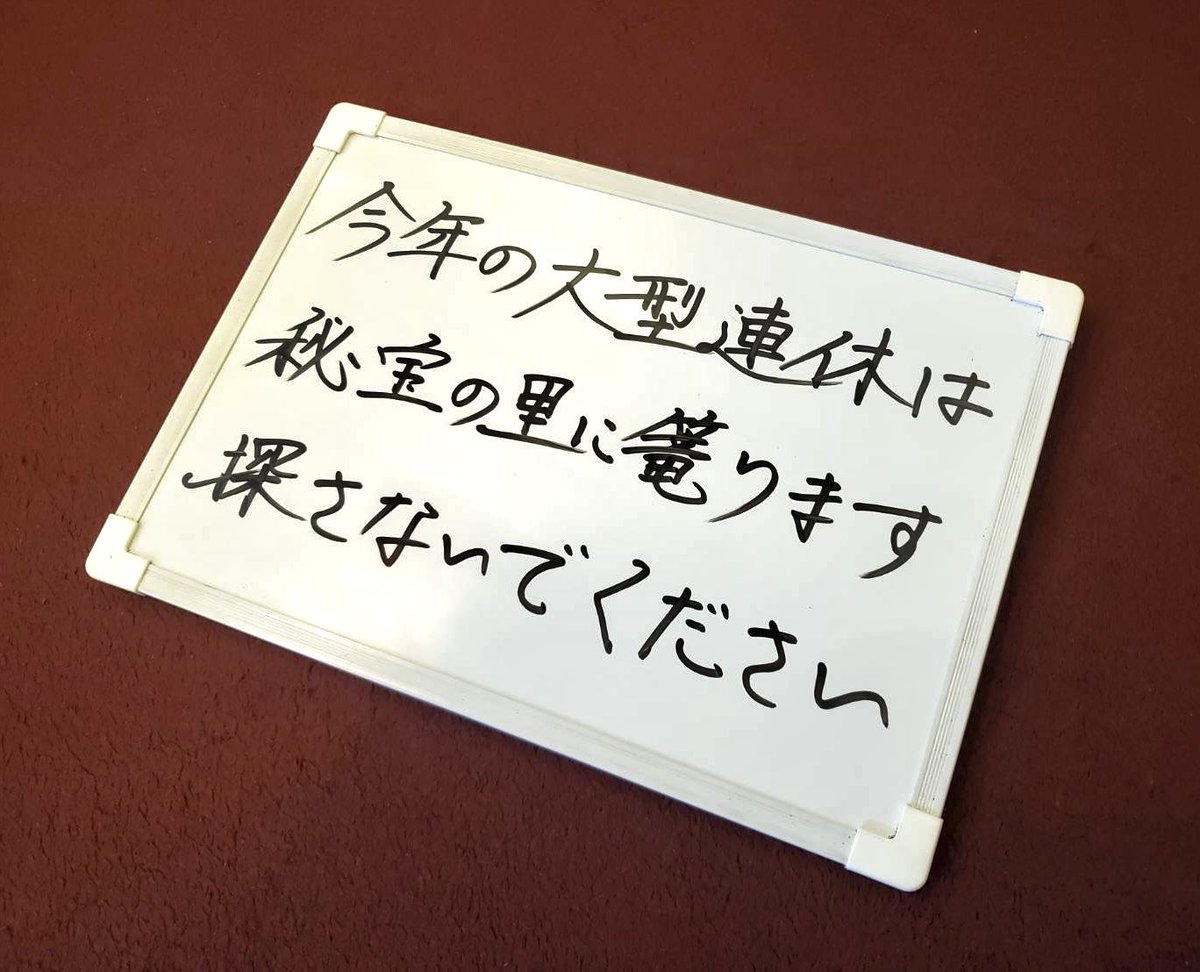 今年の大型連休は
秘宝の里に篭ります
探さないでください